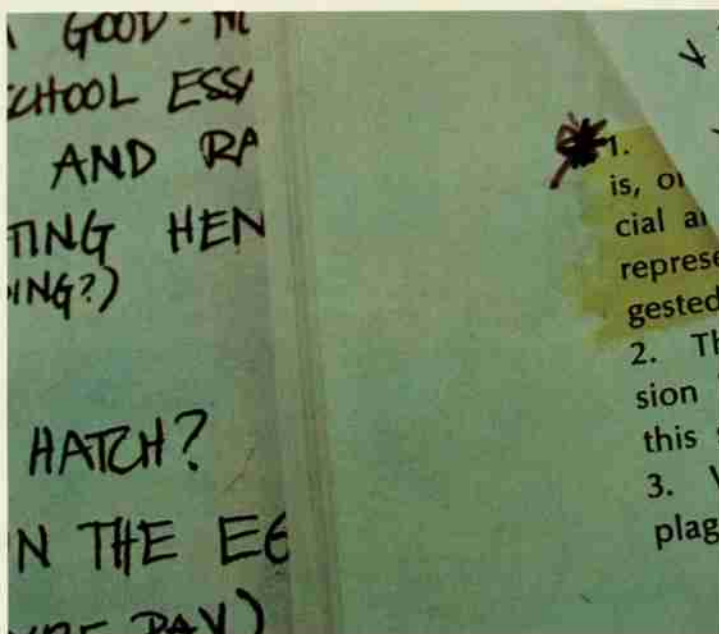 GOOD-
CHOOL ESSA
AND RA
TING HEN
ING?)
HATCH?
N THE EG
DAY)
1.
is, or
cial an
represe
gested
2. Th
sion
this
3.
plag